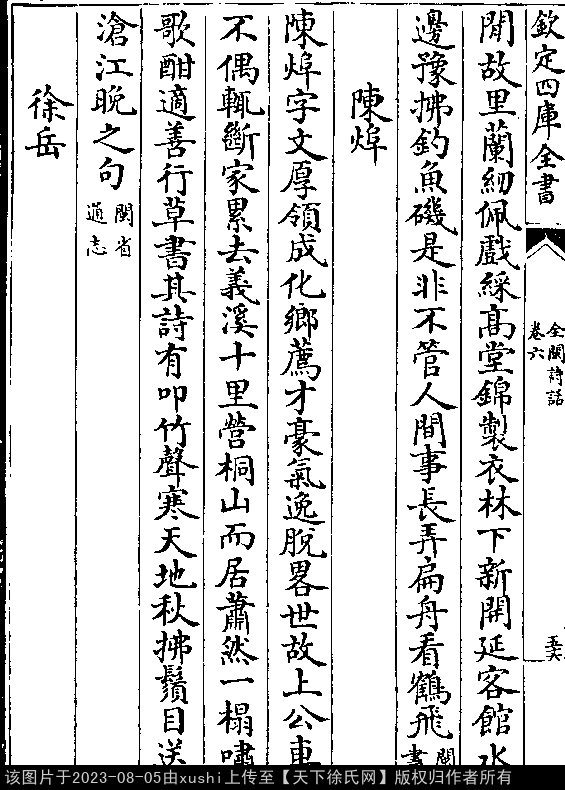 欽定四庫全書
全閩詩話
卷六
五六
閒故里蘭紉佩戲綵髙堂錦製衣林下新開延客館水
邊豫拂釣魚磯是非不管人間事長弄扁舟看鶴飛閩書
陳焯
陳焯字文厚領成化鄉薦才豪氣逸脫畧世故上公車
不偶輒斷家累去義溪十里營桐山而居蕭然一榻嘯
歌酣適善行草書其詩有叩竹聲寒天地秋拂鬚目送
滄江晚之句閩省通志
徐岳
该图片于2023-08-05由xushi上传至【天下徐氏网】版权归作者所有